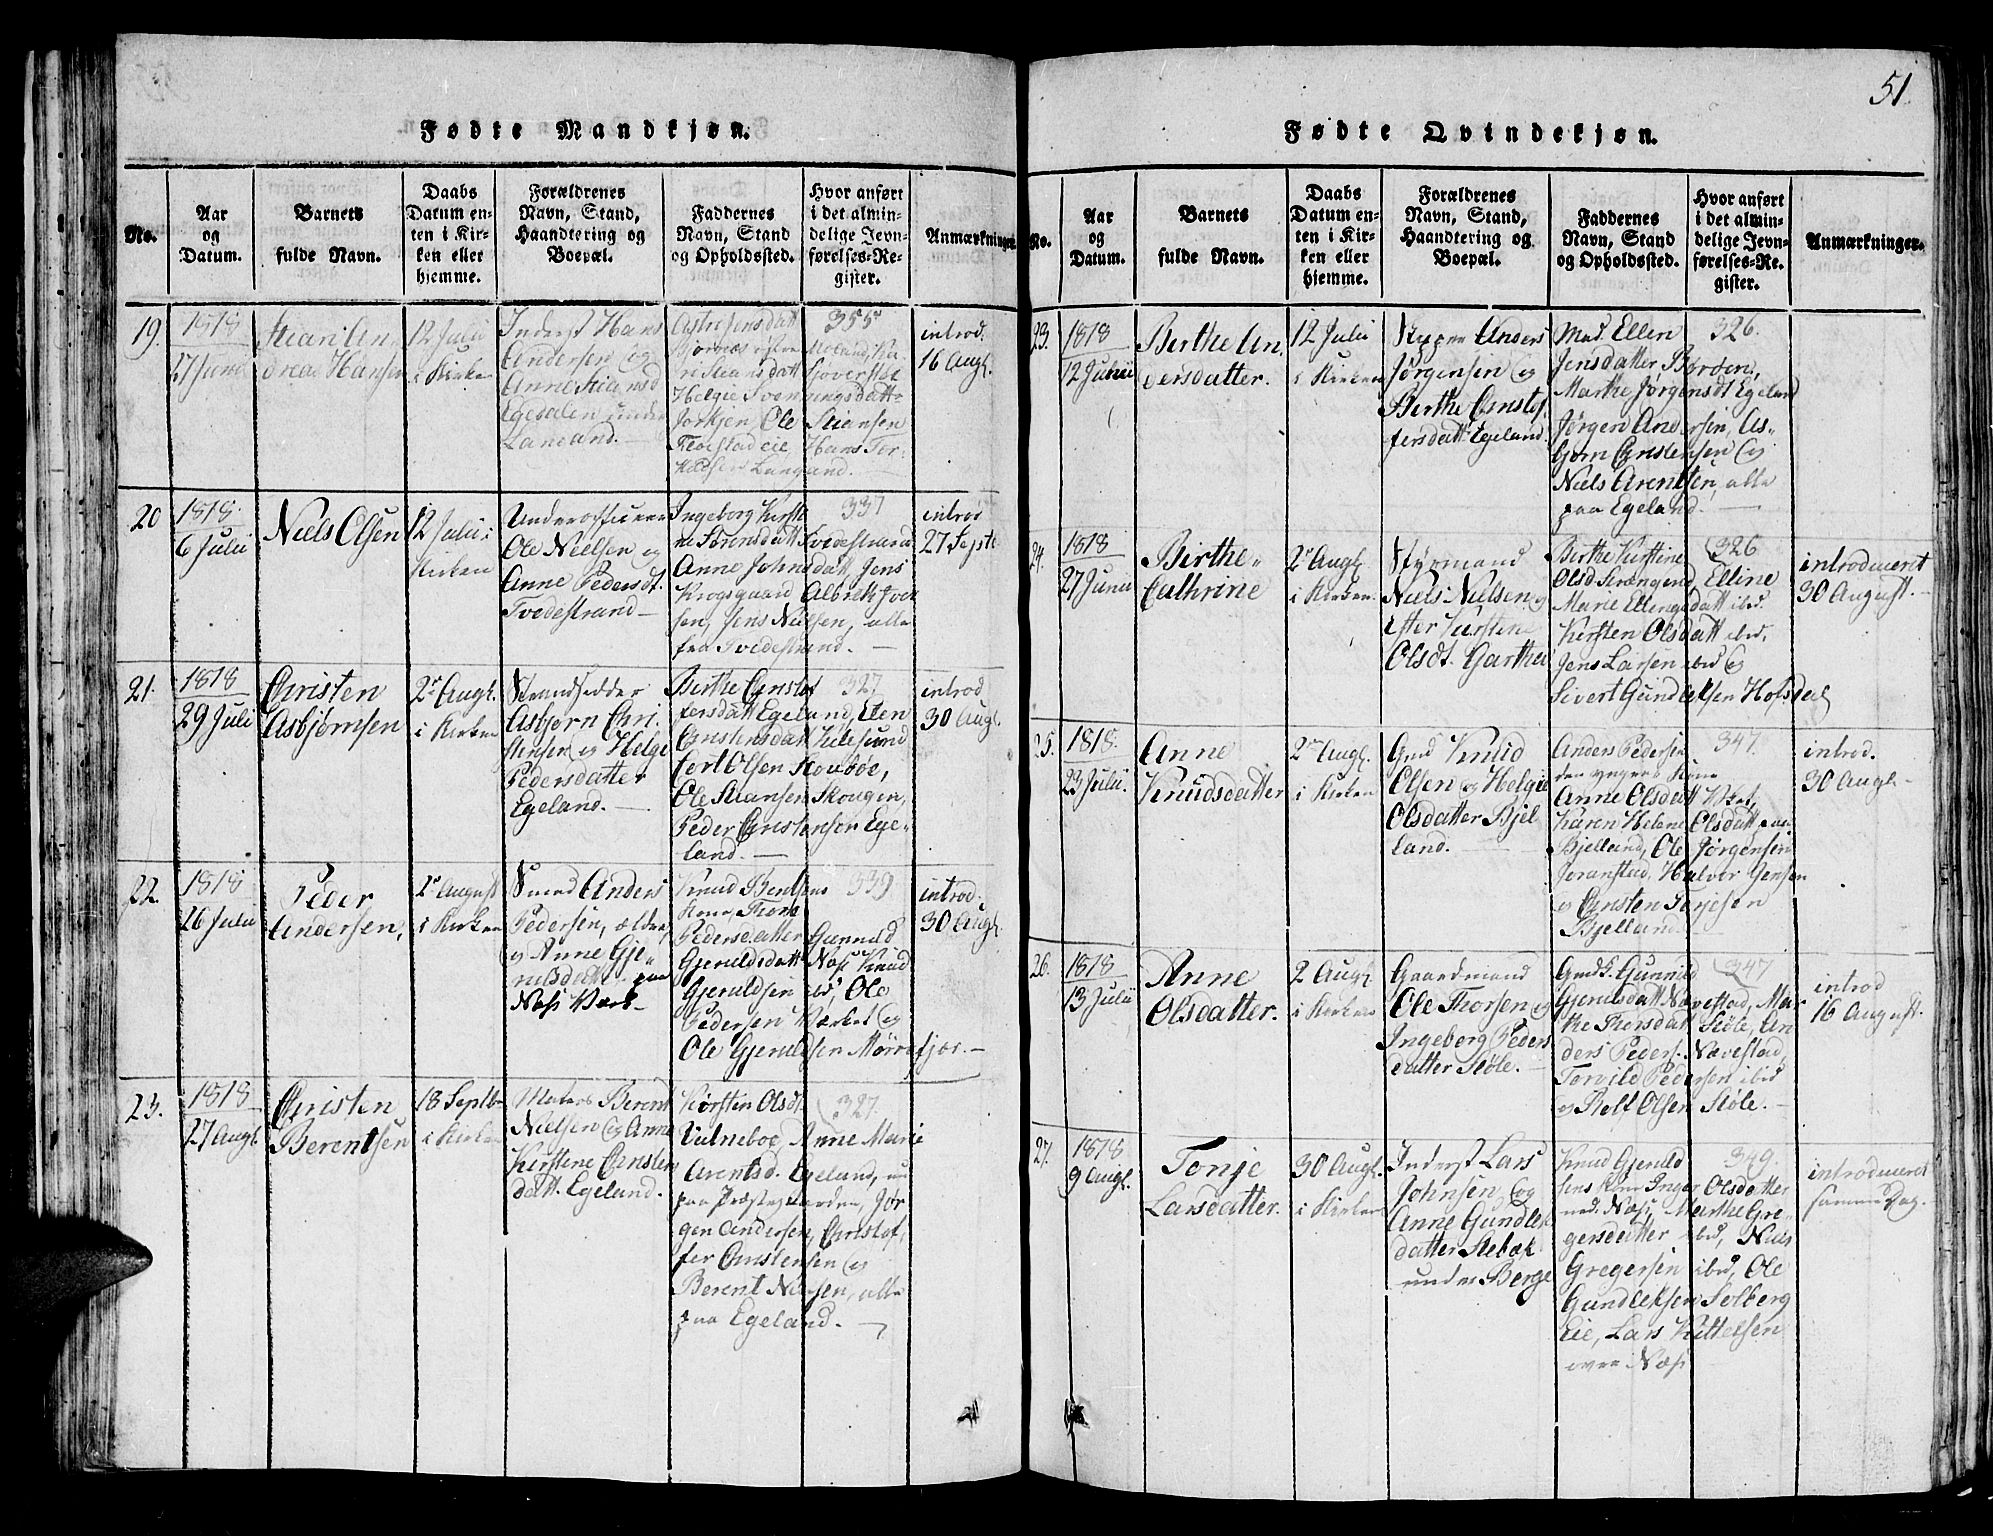 51.
Fødte Mandkjøn.
No.
Aar
og
Datum.
Barnets
fulde Navn.
Daabs
Datum en-
ten i Kir-
ken eller
hjemme.
Forældrenes
Navn, Stand,
Haandtering og
Boepæl.
Faddernes
Navn, Stand
og Opholdssted.
Hvor anført
i det almin-
delige Jevn-
førelses-Re-
gister.
Anmærkninger.
19.
1818
27 Junii
Stian An-
drea Hansen
12 Julii
i Kirken
Inderst Hans
Andersen og
Anne Stiansd
Egedalen under
Langand.
355
introd.
16 Augl.
20
1818.
6 Julii
Niels Olsen
12 Julii i
Kirken
Underofficeer
Ole Nielsen og
Anne Pedersdt.
Tvedestrand
Ingeborg Kirsti-
ne Sørensdatt Tvedestrand
Anne Johnsdatt Jens
Krogsgaard Albreth Iver
sen, Jens Nielsen, alle
fra Tvedestrand.
337
introd
27 Septr
21.
1818
29 Juli
Christen
Asbjørnsen
2den Augl.
i Kirken
Strandsidder
Asbjørn Chri-
stensen og Helge
Pedersdatter
Egeland.
Birthe Christof
fersdatt Egeland, Elen
Christensdatt Kilesund
Ole Stiansen Skougen,
Peder Christensen Ege-
land.
327
introd
30 Augl.
22.
1818
26 Julii
Peder
Andersen,
2den August
i Kirken
Smed Anders
Pedersen, ældre,
og Anne Gje-
rulsdatt paa
Næss Værk
Knud Bentsens
Kone, Thore
Pedersdatter Gunnild
Gjeruldsdatt Næss Knud
Gjeruldsen ibd, Ole
Pedersen Værket og
Ole Gjeruldsen Mørrefjær.
339
introd.
30 Augl.
23.
1818
27 Augl.
Christen
Berentsen
18 Septb
i Kirken
Matros Berent
Nielsen og Anne
Kirstine Christen
datt. Egeland.
Kirsten Olsdt.
Valneboe Anne Marie
Arentsd. Egeland, nu
paa Præstegaarden, Jør
gen Andersen, Christof,
fer Christensen og
Berent Nielsen, alle
paa Egeland.
327.
Fødte Qvindekjøn.
No.
Aar
og
Datum.
Barnets
fulde Navn.
Daabs
Datum en-
ten i Kir-
ken eller
hjemme.
Forældrenes
Navn, Stand,
Haandtering og
Boepæl.
Faddernes
Navn, Stand
og Opholdssted.
Hvor anført
i det almin-
delige Jevn-
førelses-Re-
gister.
Anmærkninger.
23.
1818
12 Junii
Birthe An
dersdatter.
12 Julii
i Kirken
Skipper Anders
Jørgensen og
Birthe Christof,
fersdatt Egeland.
Mad. Ellen
Jensdatter,
Marthe Jørgensdt Egeland
Jørgen Andersen, As-
bjørn Christensen og
Niels Arentsen, alle
paa Egeland.
326.
24.
1818
27 Junii
Birthe
Cathrine
2den Augl.
i Kirken
Styrmand
Niels Nielsen og
Kirstine
Olsdt. Garthe
Birthe Kirstine
Olsd Strængerei, Elline
Marie Ellengsdatt ibd.
Kirsten Olsdatt ibd,
Jens Larsen ibd og
Sivert Gundleksen Hofsdal
326
introduceret
30 August.
25.
1818.
23 Julii.
Anne
Knudsdatter
2den Augl.
i Kirken
Gmd Knud
Olsen og Helgie
Olsdatter Bjel
land.
Anders Pedersen
den yngere Kone
Anne Olsdatt Værket,
Karen Helene Olsdatt paa
Bjelland, Ole Jørgensen
Joranstad, Halvor Jensen
og Christen Terjesen
Bjelland.
347.
introd.
30 Augl.
26.
1818
13 Julii
Anne
Olsdatter.
2 Augl.
i Kirken
Gaardmand
Ole Thorsen og
Ingeborg Peders
datter Støle.
Gmdk. Gunnild
Gjerulsdatt Nævestad, Mar-
the Thorsdatt Støle, An
ders Peders. Nævestad,
Torvild Pedersen ibid
og Rolf Olsen Støle.
347
introd
16 August.
27.
1818
9 Augl.
Tonje
Larsdatter.
30 Augl.
i Kirken
Inderst Lars
Johnsen, og
Anne Gundlek
datter Stebæk
under Berge
Knud Gjeruld
sens Kone Inger Olsdatter
ned. Næss, Marthe Gre-
gersdatter ibd, Niels
Gregersen ibd, Ole
Gundleksen Solberg
Eie, Lars Kittelsen
øvre Næss
349.
introduceret
samme Dag.